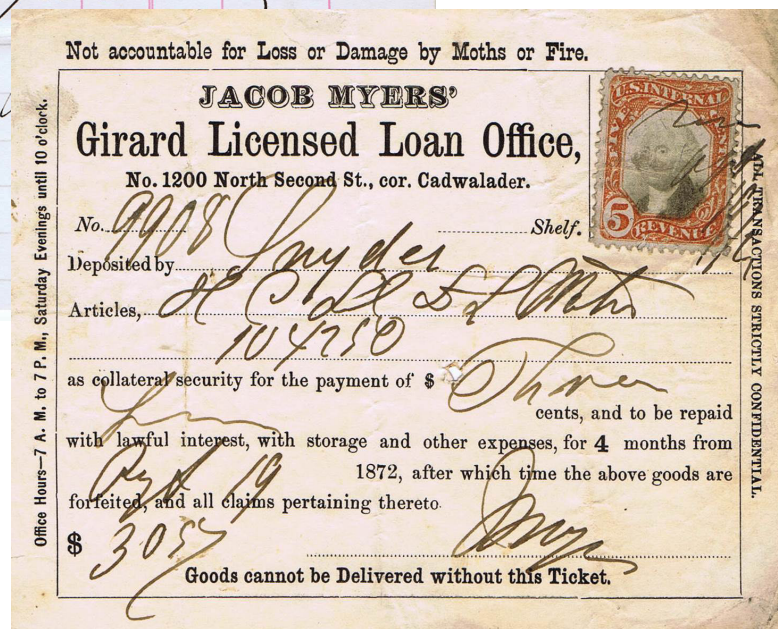 Not accountable for Loss or Damage by Moths or Fire.
JACOB MYERS'
Girard Licensed Loan Office,
No. 1200 North Second St., cor. Cadwalader.
No. 9908 Shelf.
Deposited by Snyder
Articles,
104250
as collateral security for the payment of $ Three
cents, and to be repaid
with lawful interest, with storage and other expenses, for 4 months from
19 1872, after which time the above goods are
forfeited, and all claims pertaining thereto
$
Goods cannot be Delivered without this Ticket.
Office Hours—7 A. M. to 7 P. M., Saturday Evenings until 10 o'clock.
ALL TRANSACTIONS STRICTLY CONFIDENTIAL.
U.S. INTERNAL
FIVE
5
REVENUE